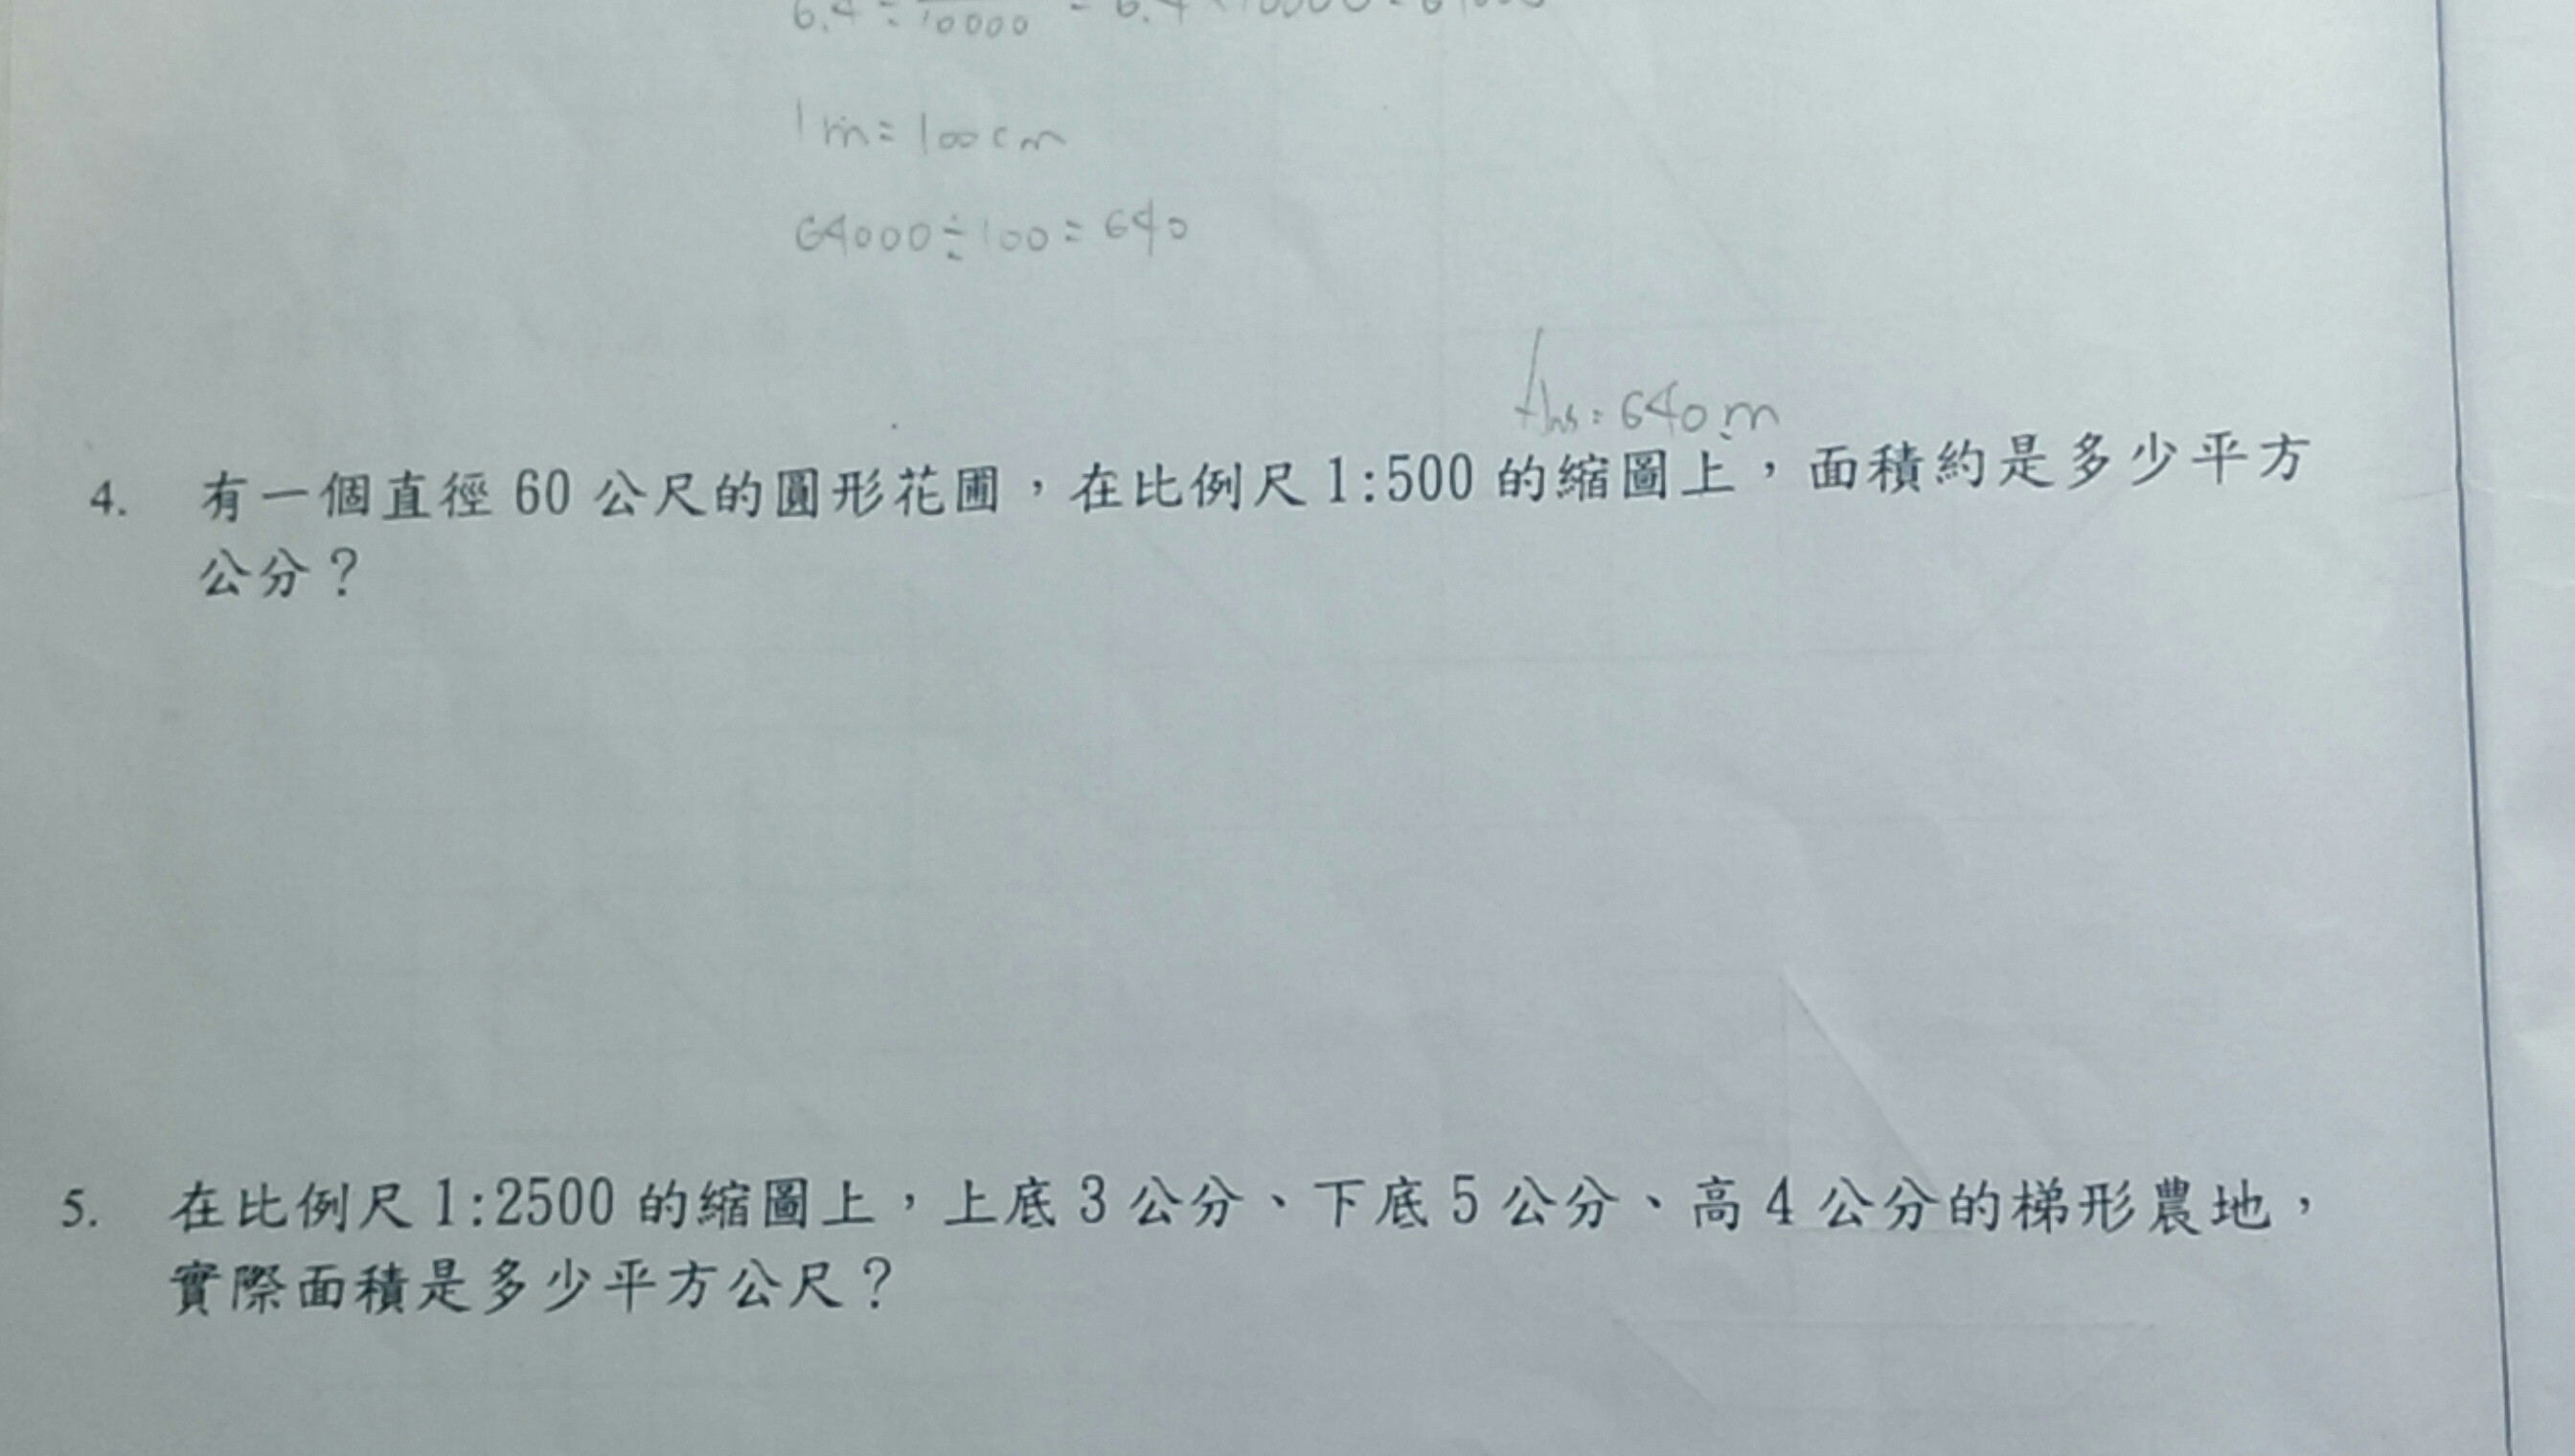 6.4÷ 10000 = 6.4×10000=64000
1m=100cm
64000÷100=640
Ans:640m
4. 有一個直徑 60 公尺的圓形花圃，在比例尺 1:500 的縮圖上，面積約是多少平方
公分？
5. 在比例尺 1:2500 的縮圖上，上底 3 公分、下底 5 公分、高 4 公分的梯形農地，
實際面積是多少平方公尺？